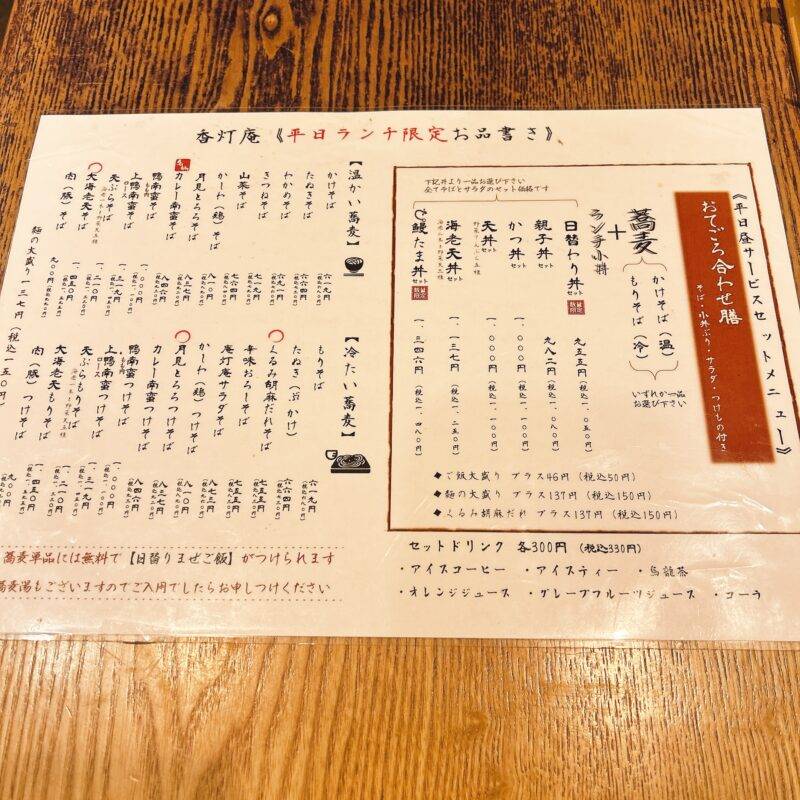 香灯庵《平日ランチ限定お品書き》
《平日昼サービスセットメニュー》
おてごろ合わせ膳
そば・小丼ぶり・サラダ・つけもの付き
蕎麦
かけそば（温）
もりそば（冷）
いずれか一品
お選び下さい
＋
ランチ小丼
下記丼より一品お選び下さい
全てそばとサラダのセット価格です
日替わり丼セット 数量限定 九五五円（税込一、〇五〇円）
親子丼セット 九八二円（税込一、〇八〇円）
かつ丼セット 一、〇〇〇円（税込一、一〇〇円）
天丼セット 一、〇〇〇円（税込一、一〇〇円）
海老天丼セット 一、一三七円（税込一、二五〇円）
鰻たま丼セット 数量限定 一、三四六円（税込一、四八〇円）
◆ご飯大盛り プラス46円（税込50円）
◆麺の大盛り プラス137円（税込150円）
◆くるみ胡麻だれ プラス137円（税込150円）
セットドリンク 各300円（税込330円）
・アイスコーヒー ・アイスティー ・烏龍茶
・オレンジジュース ・グレープフルーツジュース ・コーラ
【温かい蕎麦】
かけそば 六一九円
たぬきそば 六六四円
わかめそば 六九一円
きつねそば 七一九円
山菜そば 七六四円
かしわ（鶏）そば
月見とろろそば
カレー南蛮そば 八三七円
鴨南蛮そば 八四六円
上鴨南蛮そば ロース 一、〇〇〇円
天ぷらそば 一、三一九円
大海老天そば 一、二一〇円
肉（豚）そば
麺の大盛り一三七円（税込一五〇円）
【冷たい蕎麦】
もりそば 六一九円
たぬき（ぶっかけ） 六六四円
くるみ胡麻だれそば
辛味おろしそば 七五五円
庵灯庵サラダそば 七五五円
かしわ（鶏）つけそば
月見とろろつけそば 八一〇円
カレー南蛮つけそば 八三七円
鴨南蛮つけそば 八四六円
上鴨南蛮つけそば ロース 一、〇〇〇円
天ぷらもりそば 一、三一九円
大海老天もりそば 一、二一〇円
肉（豚）つけそば
蕎麦単品には無料で【日替りまぜご飯】がつけられます
蕎麦湯もございますのでご入用でしたらお申しつけください